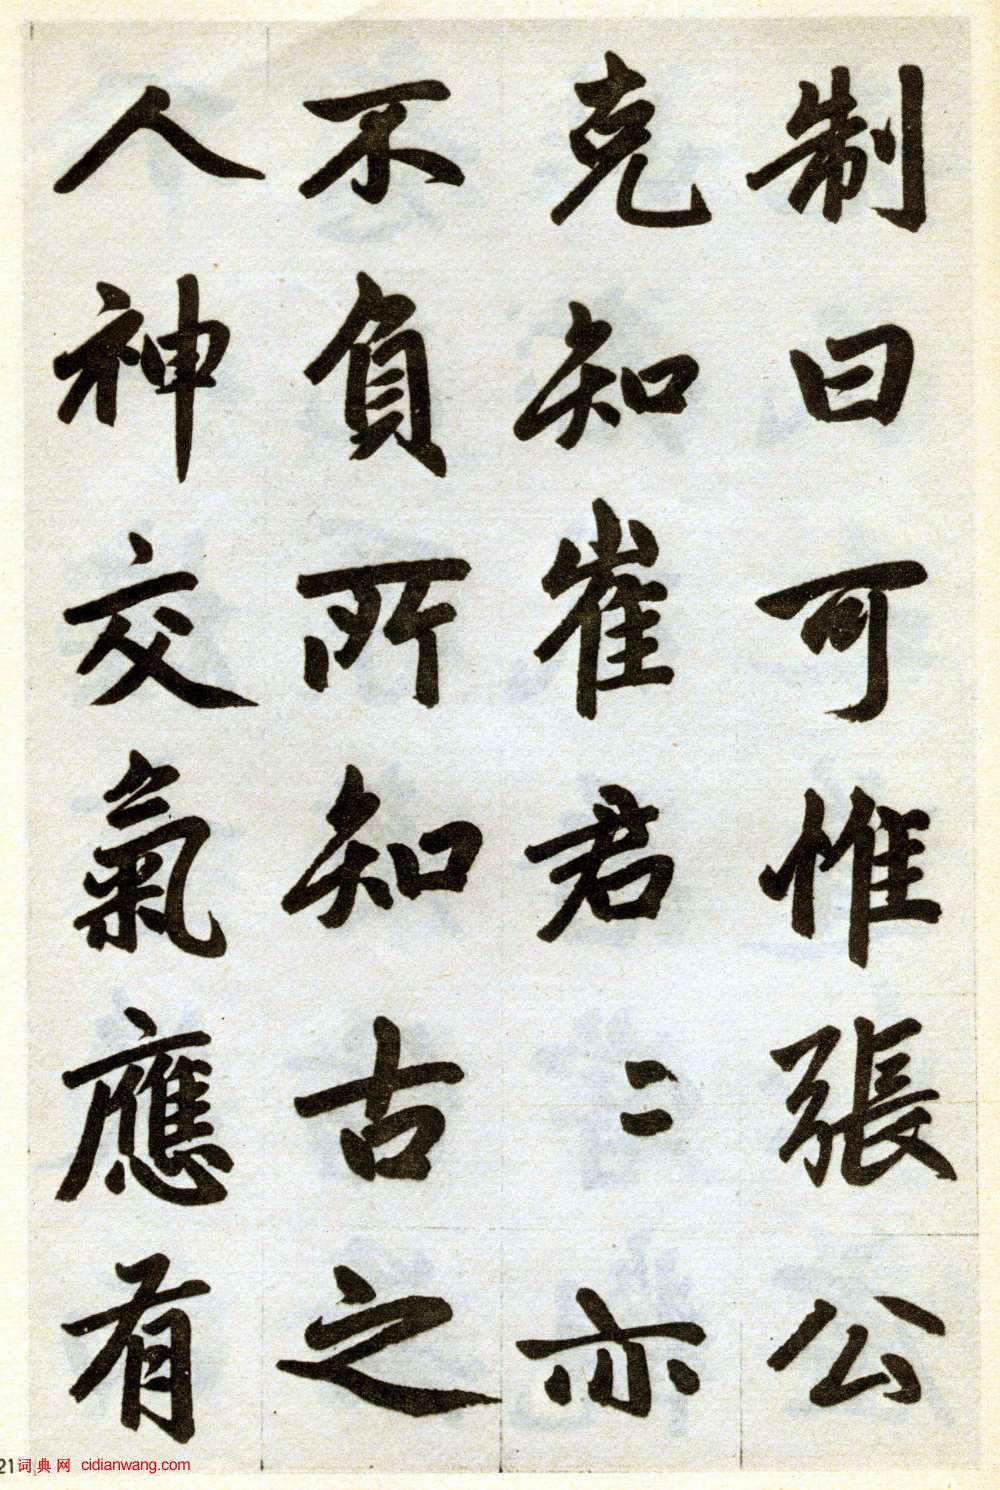 制曰可惟張公
克知崔君〻亦
不負所知古之
人神交氣應有
21词典网 cidianwang.com